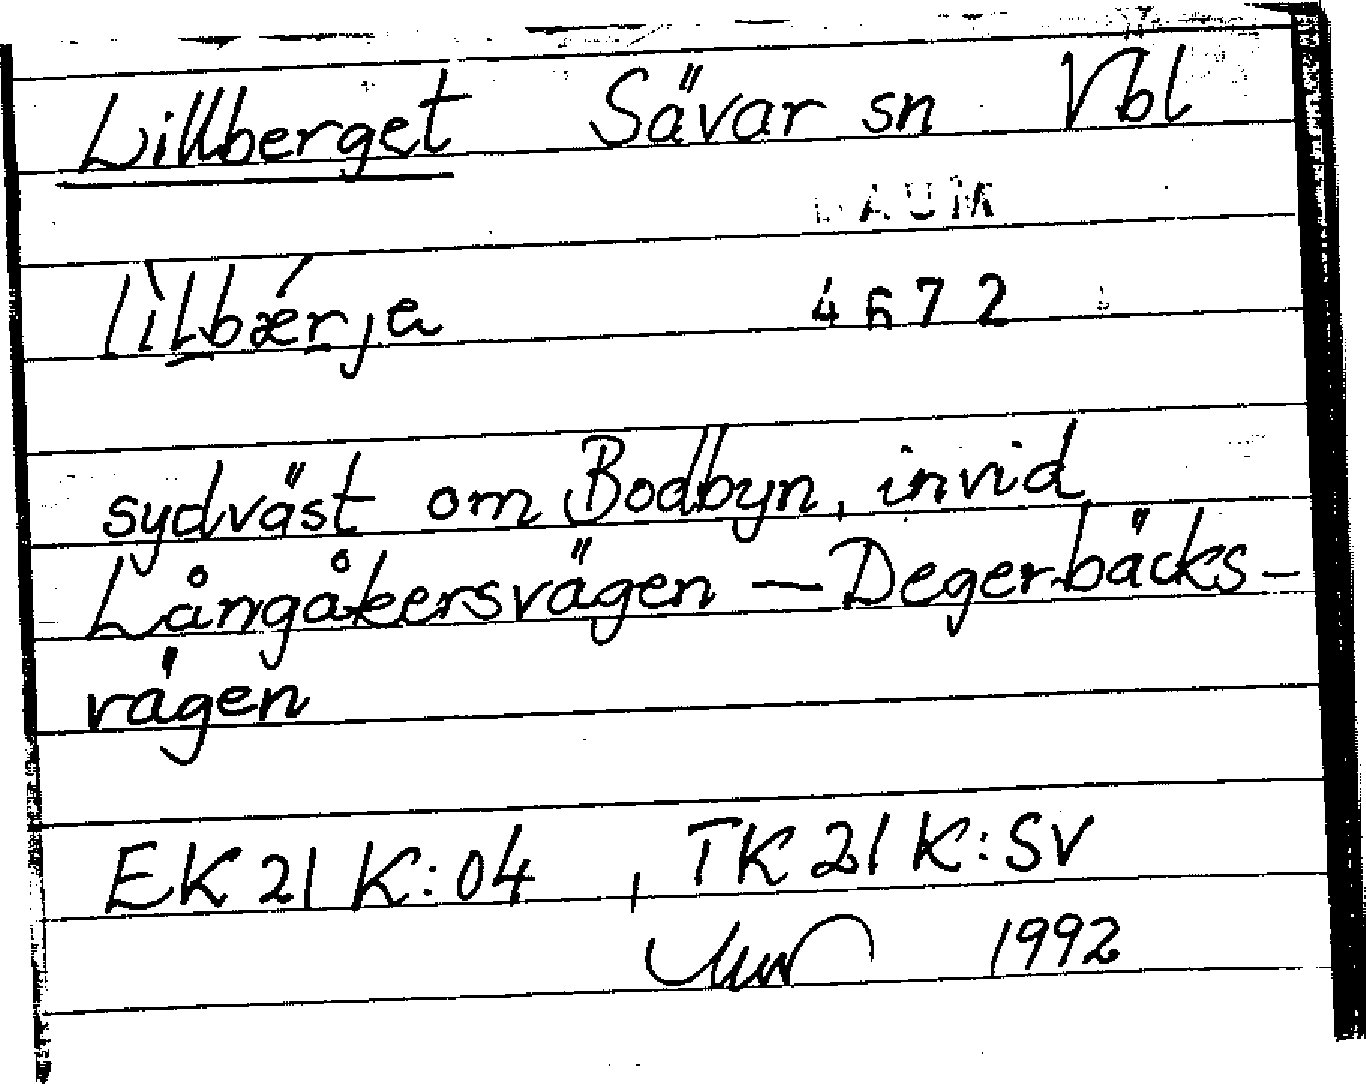 Lillberget Sävar sn Vbl
DAUM
lìlbǽrja
4672
sydväst om Bodbyn, invid
Långåkersvägen — Degerbäcks-
vägen
EK 21 K:04 , TK 21 K:SV
1992